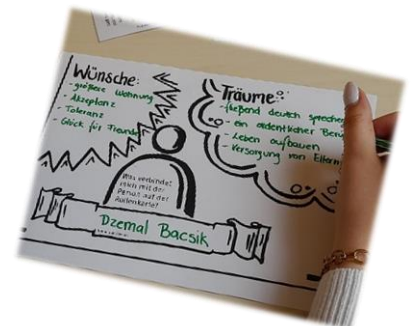 Wünsche:
- größere Wohnung
- Akzeptanz
- Toleranz
- Glück für Freunde
Träume:
- fließend deutsch sprechen
- ein ordentlicher Beruf
- Leben aufbauen
- Versorgung von Eltern
Was verbindet
mich mit der
Person auf der
Rollenkarte?
Dzemal Bacsik